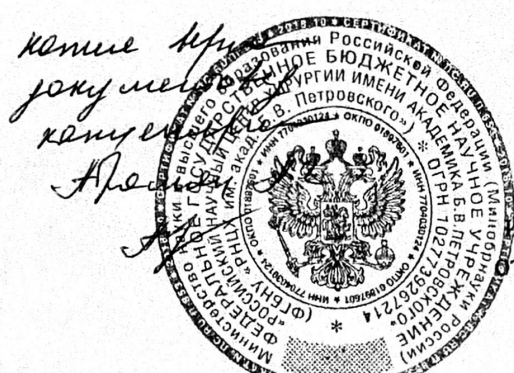 копия верна
документовед
канцелярии
МИНИСТЕРСТВО науки и высшего образования Российской Федерации (Минобрнауки России)
ФЕДЕРАЛЬНОЕ ГОСУДАРСТВЕННОЕ БЮДЖЕТНОЕ НАУЧНОЕ УЧРЕЖДЕНИЕ
«РОССИЙСКИЙ НАУЧНЫЙ ЦЕНТР ХИРУРГИИ ИМЕНИ АКАДЕМИКА Б.В.ПЕТРОВСКОГО»
(ФГБНУ «РНЦХ им. акад. Б.В. Петровского») * ОГРН 1027739267214
* ИНН 7704030124 * ОКПО 01897601